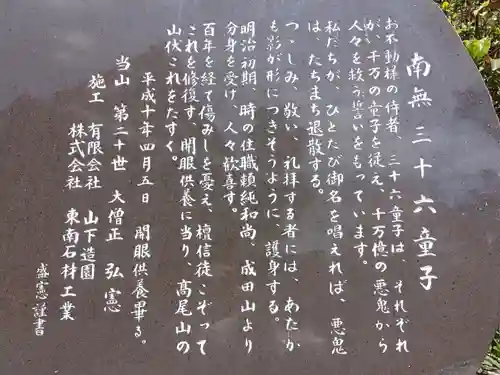 南無三十六童子
お不動様の侍者、三十六童子は、それぞれ
が、千万の童子を従え、千万億の悪鬼から
人々を救う誓いをもっています。
私たちが、ひとたび御名を唱えれば、悪鬼
は、たちまち退散する。
つゝしみ、敬い、礼拝する者には、あたか
も影が形につきそうように、護身する。
明治初期、時の住職頼純和尚、成田山より
分身を受け、人々歓喜す。
百年を経て傷みしを憂え、檀信徒こぞって
これを修復す。開眼供養に当り、高尾山の
山伏これをたすく。
平成十年四月五日 開眼供養畢る。
当山 第二十世 大僧正 弘憲
施工 有限会社 山下造園
株式会社 東南石材工業
盛憲謹書